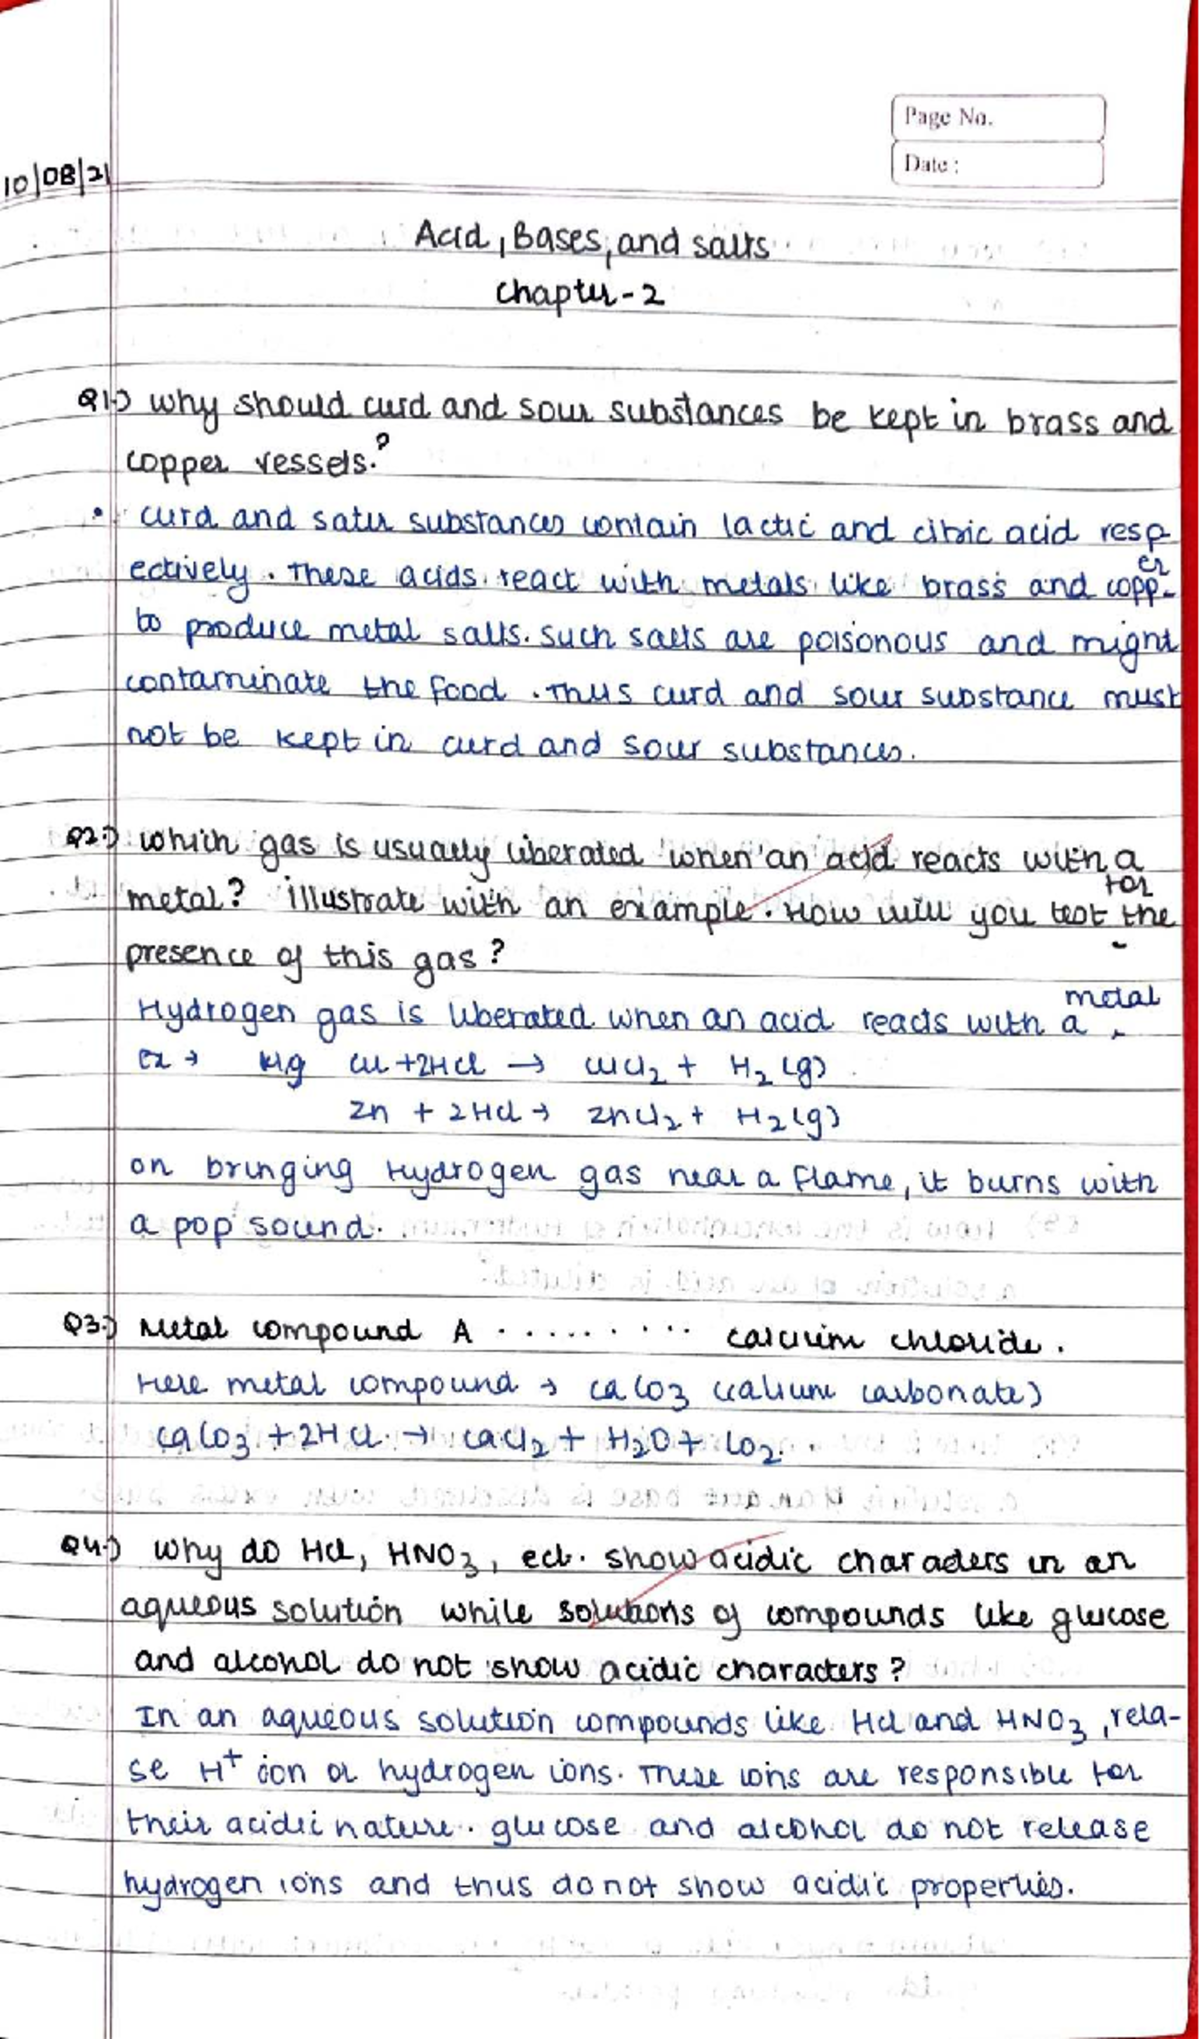 Page No.
Date :
10/08/21
Acid, Bases, and salts
Chapter-2
Q1.) why should curd and sour substances be kept in brass and
copper vessels.?
• curd and satur substances contain lactic and citric acid resp-
ectively. These acids react with metals like brass and copp-er
to produce metal salts. such salts are poisonous and might
contaminate the food. Thus curd and sour substance must
not be kept in curd and sour substances.
Q2.) Which gas is usually liberated when an acid reacts with a
metal? illustrate with an example. How will you test for the
presence of this gas?
Hydrogen gas is liberated when an acid reacts with a metal.
Ex → Mg Cu + 2HCl → CuCl2 + H2 (g)
Zn + 2HCl → ZnCl2 + H2(g)
on bringing Hydrogen gas near a flame, it burns with
a pop sound.
Q3.) Metal compound A ......... calcium chloride.
Here metal compound → CaCO3 (calium carbonate)
CaCO3 + 2HCl → CaCl2 + H2O + CO2.
Q4.) Why do HCl, HNO3, ect. show acidic characters in an
aqueous solution while solutions of compounds like glucose
and alcohol do not show acidic characters?
In an aqueous solution compounds like HCl and HNO3, rela-
se H+ ion or hydrogen ions. These ions are responsible for
their acidic nature. glucose and alcohol do not release
hydrogen ions and thus do not show acidic properties.